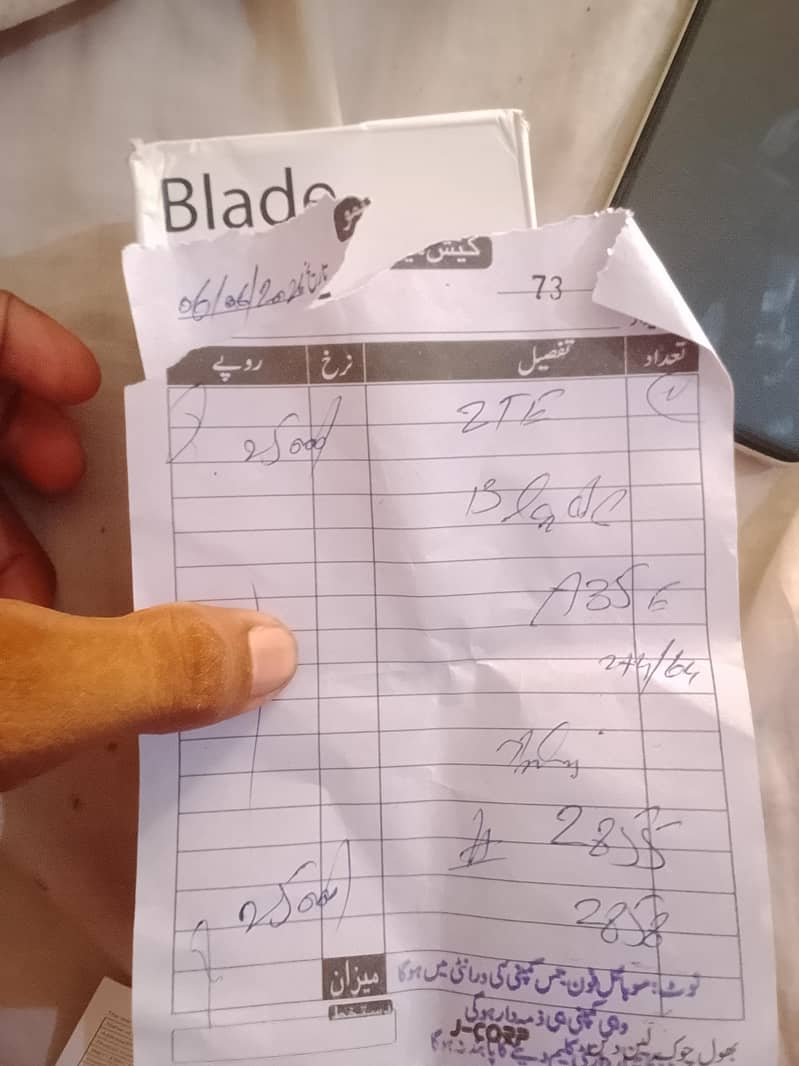 Blade
کیش
تاریخ 06/06/2026
73
تعداد تفصیل نرخ روپے
1 ZTE 25000/
Blade
A35 E
2+4/64
# 2855
2858
25000/
میزان
نوٹ: موبائل فون جس کمپنی کی وارنٹی میں ہوگا
وہی کمپنی ہی ذمہ دار ہوگی
J-CORP
بھول چوک لین دین